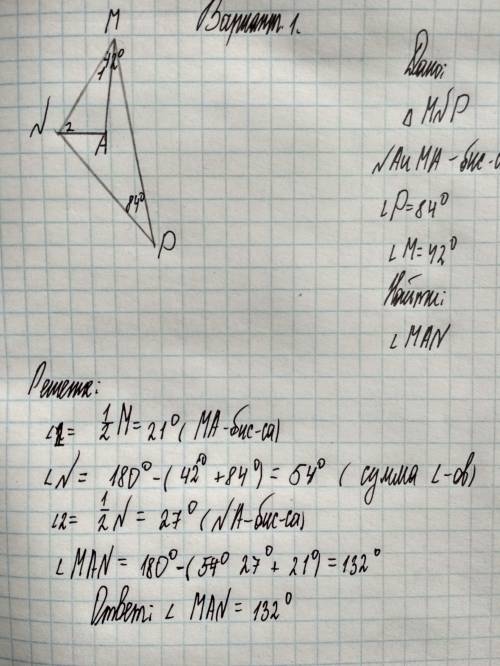 Вариант 1.
M
1 42°
N 2
A
84°
P
Дано:
△ MNP
NA и MA - бис-
∠P = 84°
∠M = 42°
Найти:
∠MAN
Решение:
∠1 = 1/2 M = 21° (MA - бис-са)
∠N = 180° - (42° + 84°) = 54° (сумма ∠-ов)
∠2 = 1/2 N = 27° (NA - бис-са)
∠MAN = 180° - (27° + 21°) = 132°
Ответ: ∠ MAN = 132°